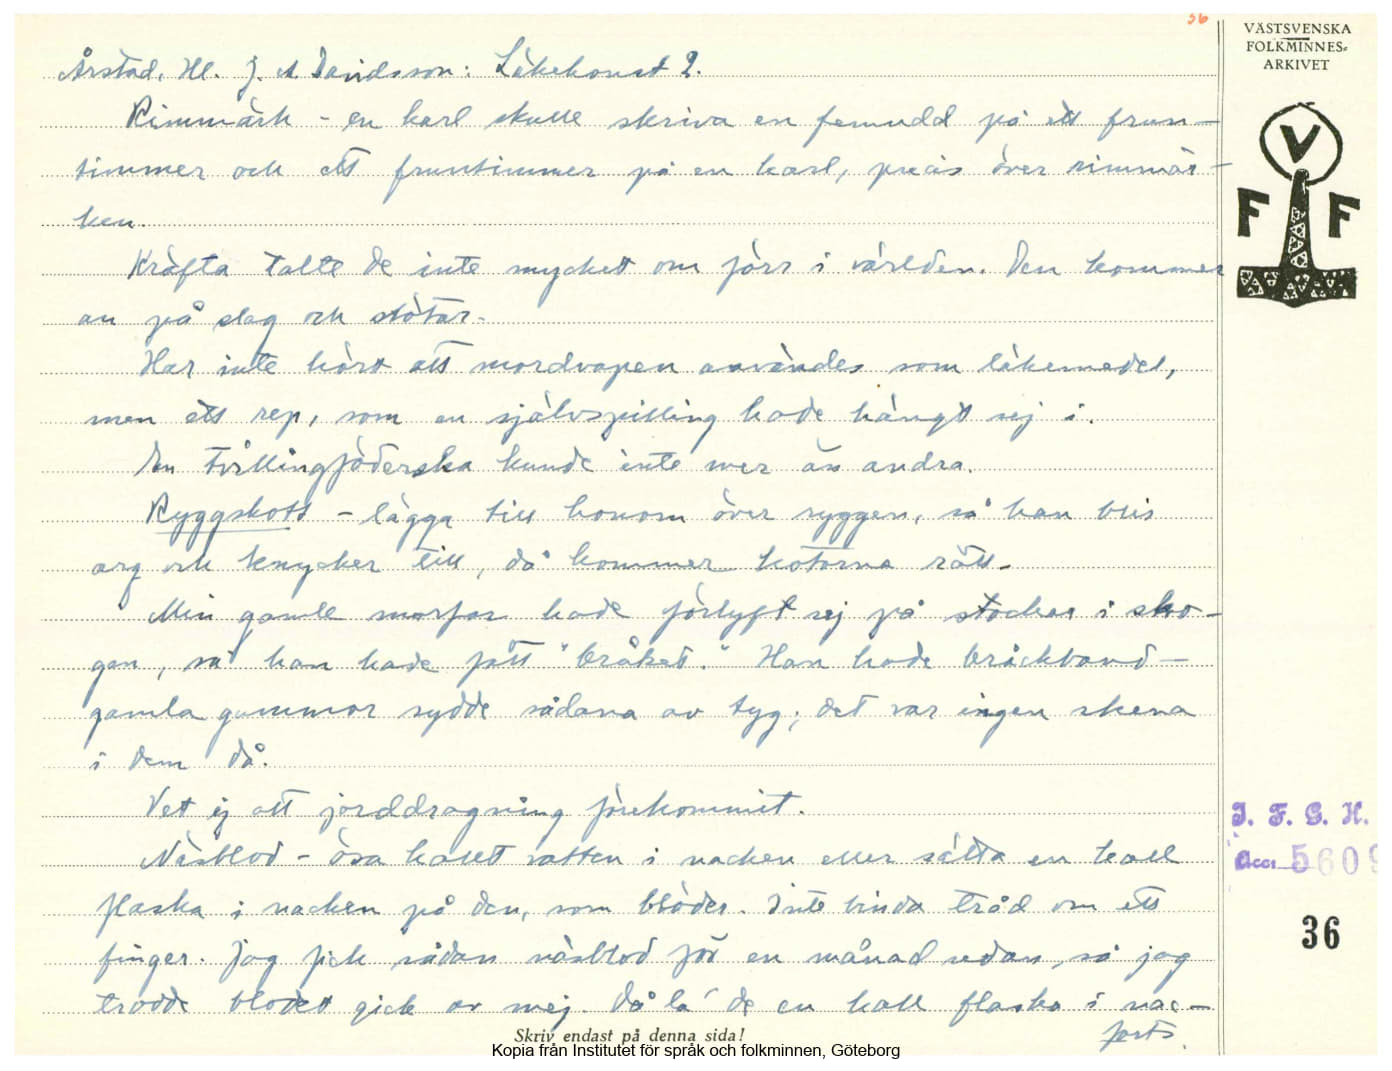 36
VÄSTSVENSKA
FOLKMINNES-
ARKIVET
Årstad, Hl. J. A Davidsson: Läkekonst 2.
Rimmärk - en karl skulle skriva en femudd på ett frun-
timmer och ett fruntimmer på en karl, precis över rimmär-
ken.
Kräfta talte de inte mycket om förr i världen. Den kommer
an på slag och stötar.
Har inte hört att mordvapen användes som läkemedel,
men ett rep, som en självspilling hade hängt sej i.
En tvillingföderska kunde inte mer än andra.
Ryggskott - lägga till honom över ryggen, så han blis
arg och knycker till, då kommer kotorna rätt.
Min gamle morfar hade förlyft sej på stockar i sko-
gen, så han hade fått "bråket." Han hade bråckband -
gamla gummor sydde sådana av tyg; det var ingen skena
i dem då.
Vet ej att jorddragning förekommit.
Näsblod - ösa kallt vatten i nacken eller sätta en kall
flaska i nacken på den, som blöder. Inte binda tråd om ett
finger. Jag fick sådan näsblod för en månad sedan, så jag
trodde blodet gick av mej. Då la' de en kall flaska i nac-
forts.
Skriv endast på denna sida!
V
F F
I. F. G. H.
Acc: 5609
36
Kopia från Institutet för språk och folkminnen, Göteborg